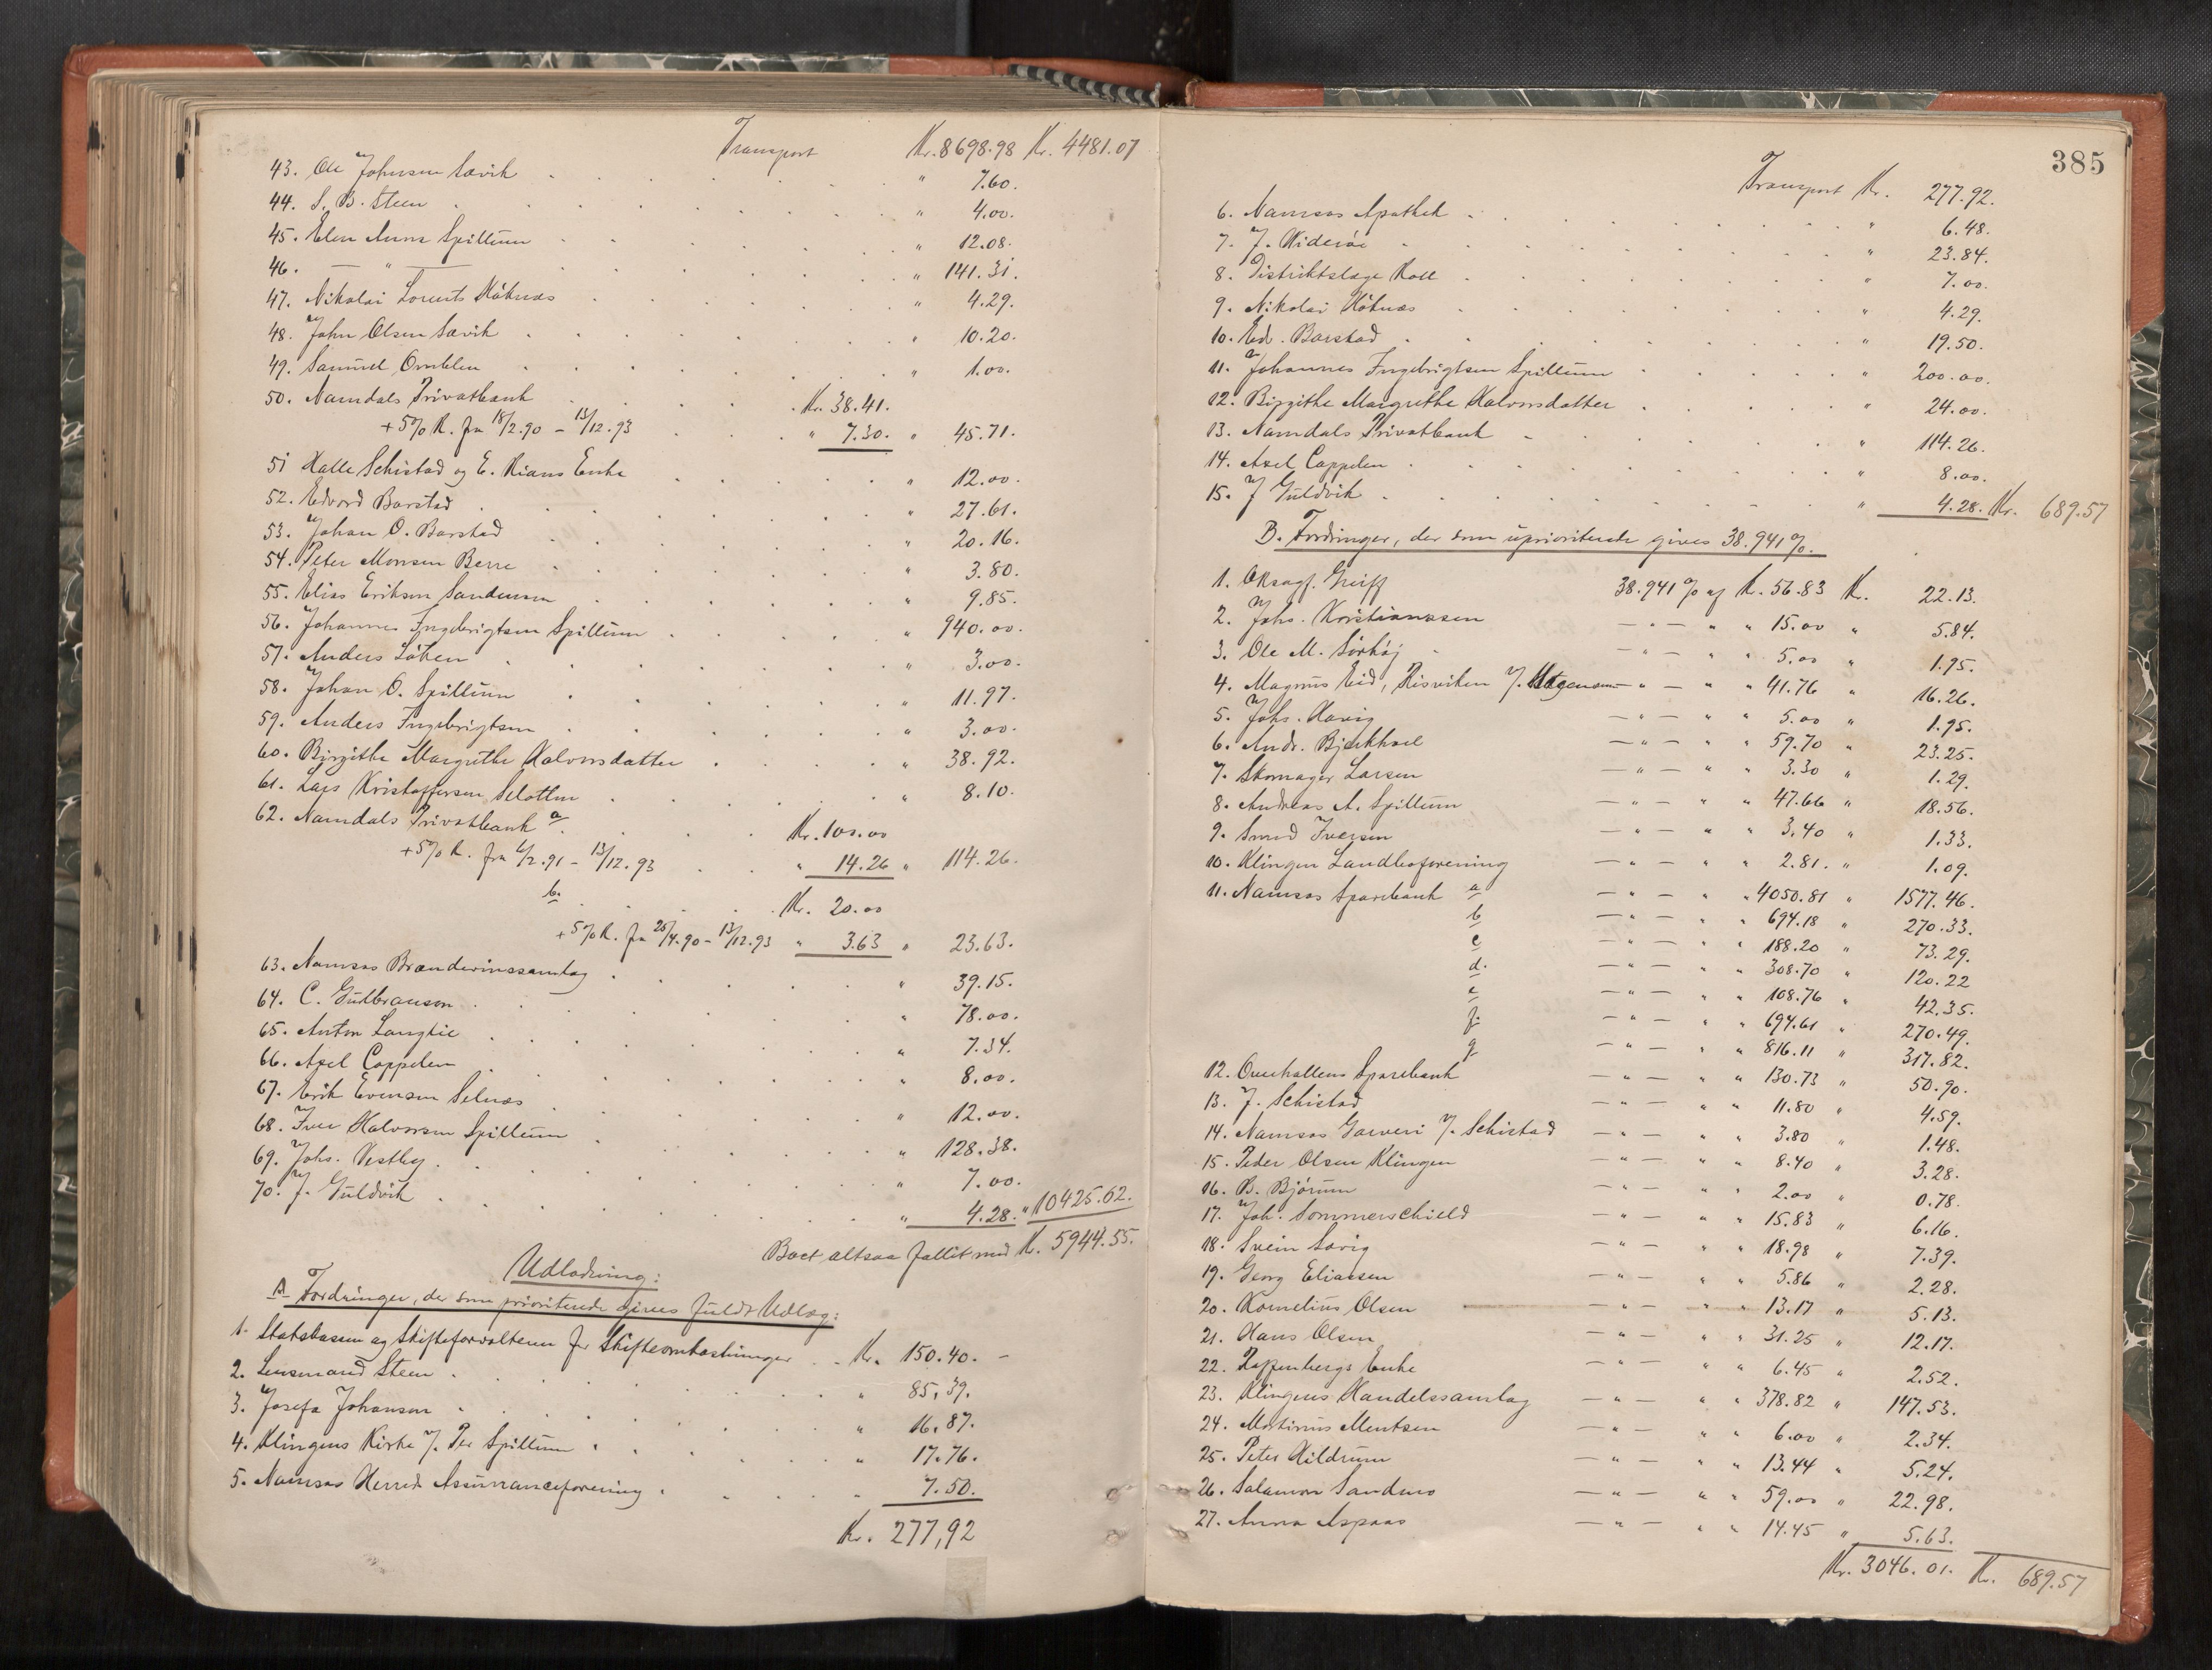 Transport Kr. 8698.98 Kr. 4481.07
43. Ole Johnsen Sævik " 7.60.
44. S. B. Steen " 4.00.
45. Elen Anna Spillum " 12.08.
46. — " — " 141.31.
47. Nikolai Lorents Höknæs " 4.29.
48. John Olsen Sævik " 10.20.
49. Samuel Omblen " 1.00.
50. Namdals Privatbank Kr. 38.41.
+ 5% R. fra 18/2.90 – 13/12.93 " 7.30. " 45.71.
51 Halle Schistad og E. Kians Enke " 12.00.
52. Edvard Barstad " 27.61.
53. Johan O. Barstad " 20.16.
54. Peter Monsen Berre " 3.80.
55. Elias Eriksen Sandmoen " 9.85.
56. Johannes Ingebrigtsen Spillum " 940.00.
57. Anders Löken " 3.00.
58. Johan O. Spillum " 11.97.
59. Anders Ingebrigtsen " 3.00.
60. Birgithe Margrethe Halvorsdatter " 38.92.
61. Lars Kristoffersen Selotten " 8.10.
62. Namdals Privatbank a. Kr. 100.00
+ 5% R. fra 6/2.91 – 13/12.93 " 14.26 " 114.26.
b. Kr. 20.00
+ 5% R. fra 25/4.90 – 13/12.93 " 3.63 " 23.63.
63. Namsos Brændevinssamlag " 39.15.
64. C. Gulbranson " 78.00.
65. Anton Langlie " 7.34.
66. Axel Cappelen " 8.00.
67. Erik Evensen Selnæs " 12.00.
68. Iver Halvorsen Spillum " 128.38.
69. Johs. Vestby " 7.00.
70. J. Guldvik " 4.28. " 10425.62.
Boet altsaa fallit med Kr. 5944.55.
Udlodning:
A. Fordringer, der som prioriterede gives fuldt Udlæg:
1. Statskassen og Skifteforvalteren for Skifteomkostninger Kr. 150.40. –
2. Lensmand Steen " 85,39.
3. Josefa Johansen " 16.87.
4. Klingens Kirke v. Per Spillum " 17.76.
5. Namsos Herred Assuranceforening " 7.50.
Kr. 277,92
385
Transport Kr. 277.92.
6. Namsos Apothek " 6.48.
7. J. Widerøe " 23.84.
8. Distriktslæge Koll " 7.00.
9. Nikolai Höknæs " 4.29.
10. Ed. Barstad " 19.50.
11. a Johannes Ingebrigtsen Spillum " 200.00.
12. Birgithe Margrethe Halvorsdatter " 24.00.
13. Namdals Privatbank " 114.26.
14. Axel Cappelen " 8.00.
15. J Guldvik " 4.28. Kr. 689.57
B. Fordringer, der som uprioriterede gives 38.941%.
1. Oksagf. Greiff 38.941% af Kr. 56.83 Kr. 22.13.
2. Johs. Kristianssen — " — " " 15.00 " 5.84.
3. Ole M. Sörhöj — " — " " 5.00 " 1.95.
4. Magnus Eid, Risviken v. Mogensen — " — " " 41.76 " 16.26.
5. Johs. Havig — " — " " 5.00 " 1.95.
6. Andr. Bjerkhoel — " — " " 59.70 " 23.25.
7. Skomager Larsen — " — " " 3.30 " 1.29.
8. Andreas A. Spillum — " — " " 47.66 " 18.56.
9. Smed Iversen — " — " " 3.40 " 1.33.
10. Klingen Landboforening — " — " " 2.81. " 1.09.
11. Namsos Sparebank a — " — " " 4050.81 " 1577.46.
b — " — " " 694.18 " 270.33.
c — " — " " 188.20 " 73.29.
d. — " — " " 308.70 " 120.22
e — " — " " 108.76 " 42.35.
f. — " — " " 694.61 " 270.49.
g — " — " " 816.11 " 317.82.
12. Overhallens Sparebank — " — " " 130.73 " 50.90.
13. J. Schistad — " — " " 11.80 " 4.59.
14. Namsos Garveri v. Schistad — " — " " 3.80 " 1.48.
15. Peder Olsen Klingen — " — " " 8.40 " 3.28.
16. B. Bjørum — " — " " 2.00 " 0.78.
17. Joh. Sommerschield — " — " " 15.83 " 6.16.
18. Svein Sævig — " — " " 18.98 " 7.39.
19. Georg Eliassen — " — " " 5.86 " 2.28.
20. Kornelius Olsen — " — " " 13.17 " 5.13.
21. Hans Olsen — " — " " 31.25 " 12.17.
22. Enke — " — " " 6.45 " 2.52.
23. Klingens Handelssamlag — " — " " 378.82 " 147.53.
24. Martinus Mentsen — " — " " 6.00 " 2.34.
25. Peter Hildrum — " — " " 13.44 " 5.24.
26. Salamon Sandmo — " — " " 59.00 " 22.98.
27. Anna Aspaas — " — " " 14.45 " 5.63.
Kr. 3046.01. Kr. 689.57